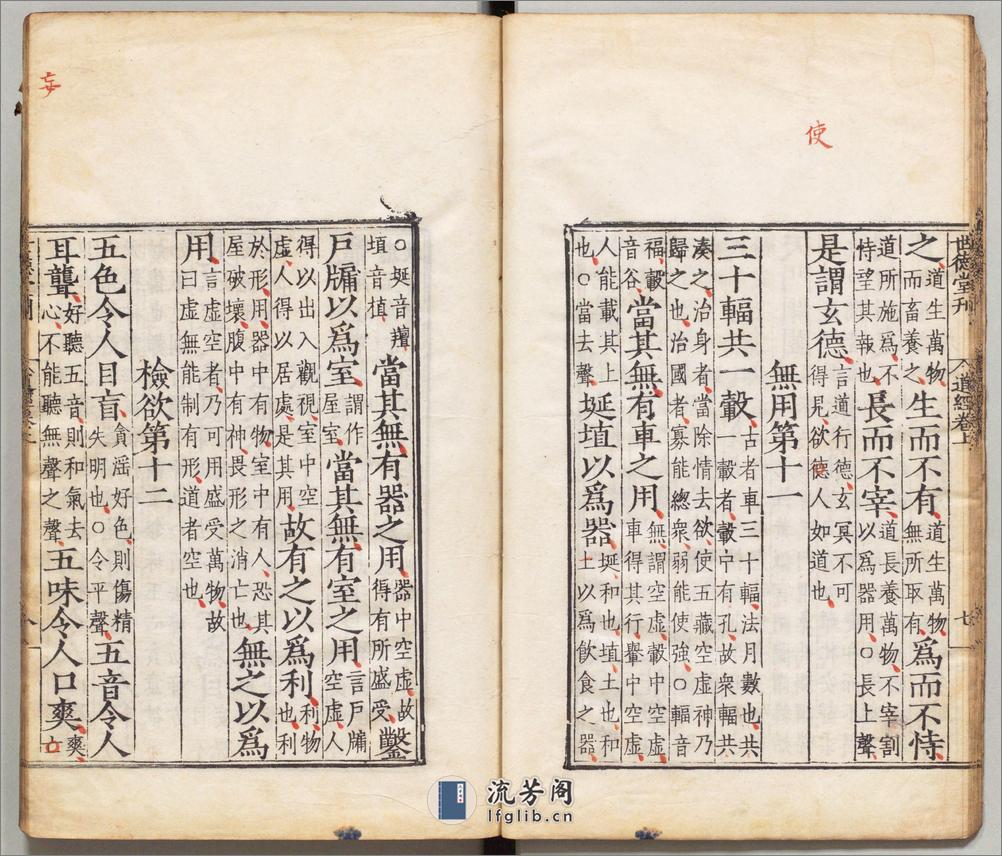 使
世德堂刊 道經卷上 七
之道生萬物而畜養之生而不有道生萬物無所取有爲而不恃
道所施爲不恃望其報也長而不宰道長養萬物不宰割以爲器用○長上聲
是謂玄德言道行德玄冥不可得見欲德人如道也
無用第十一
三十輻共一轂古者車三十輻法月數也共一轂者轂中有孔故衆輻共
湊之治身者當除情去欲使五藏空虛神乃歸之也治國者寡能緫衆弱能使強○輻音
福轂音谷當其無有車之用無謂空虛轂中空虛車得其行轝中空虛
人能載其上也○當去聲埏埴以爲器埏和也埴土也和土以爲飲食之器
○埏音羶埴音植當其無有器之用器中空虛故得有所盛受鑿
戶牖以爲室謂作屋室當其無有室之用言戶牖空虛人
得以出入觀視室中空虛人得以居處是其用故有之以爲利利物也利
於形用器中有物室中有人恐其屋破壞腹中有神畏形之消亡也無之以爲
用言虛空者乃可用盛受萬物故曰虛無能制有形道者空也
檢欲第十二
五色令人目盲貪滛好色則傷精失明也○令平聲五音令人
耳聾好聽五音則和氣去心不能聽無聲之聲五味令人口爽爽
妄
流芳阁
lfglib.cn